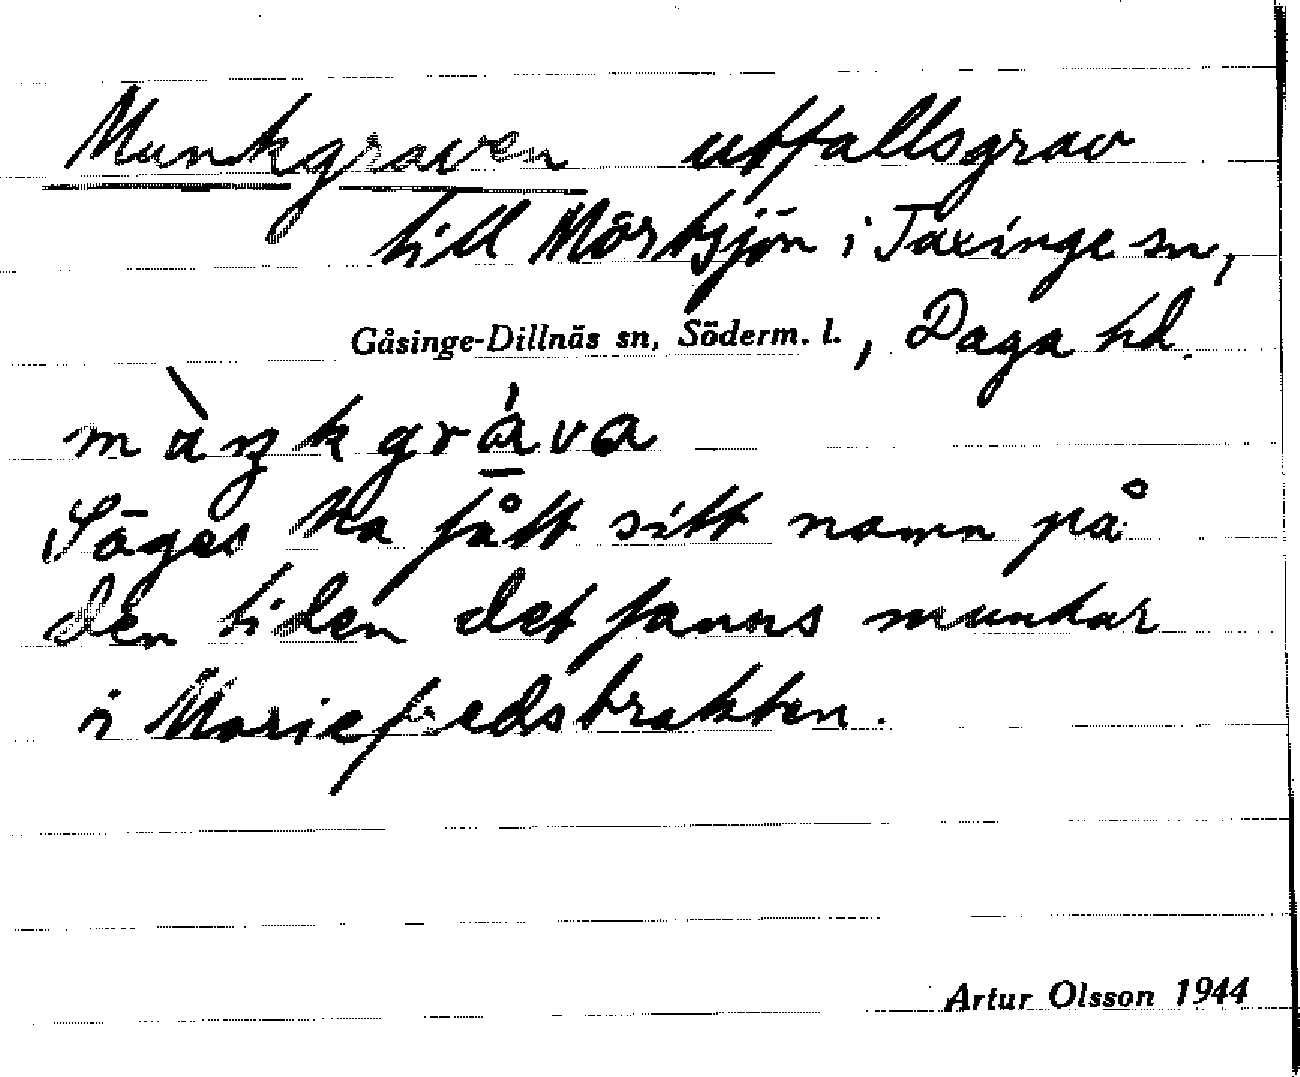 Munkgraven utfallsgrav
till Mörtsjön i Taxinge sn,
Gåsinge-Dillnäs sn, Söderm. l., Daga hd.
Säges ha fått sitt namn på
den tiden det fanns munkar
i Mariefredstrakten.
Artur Olsson 1944